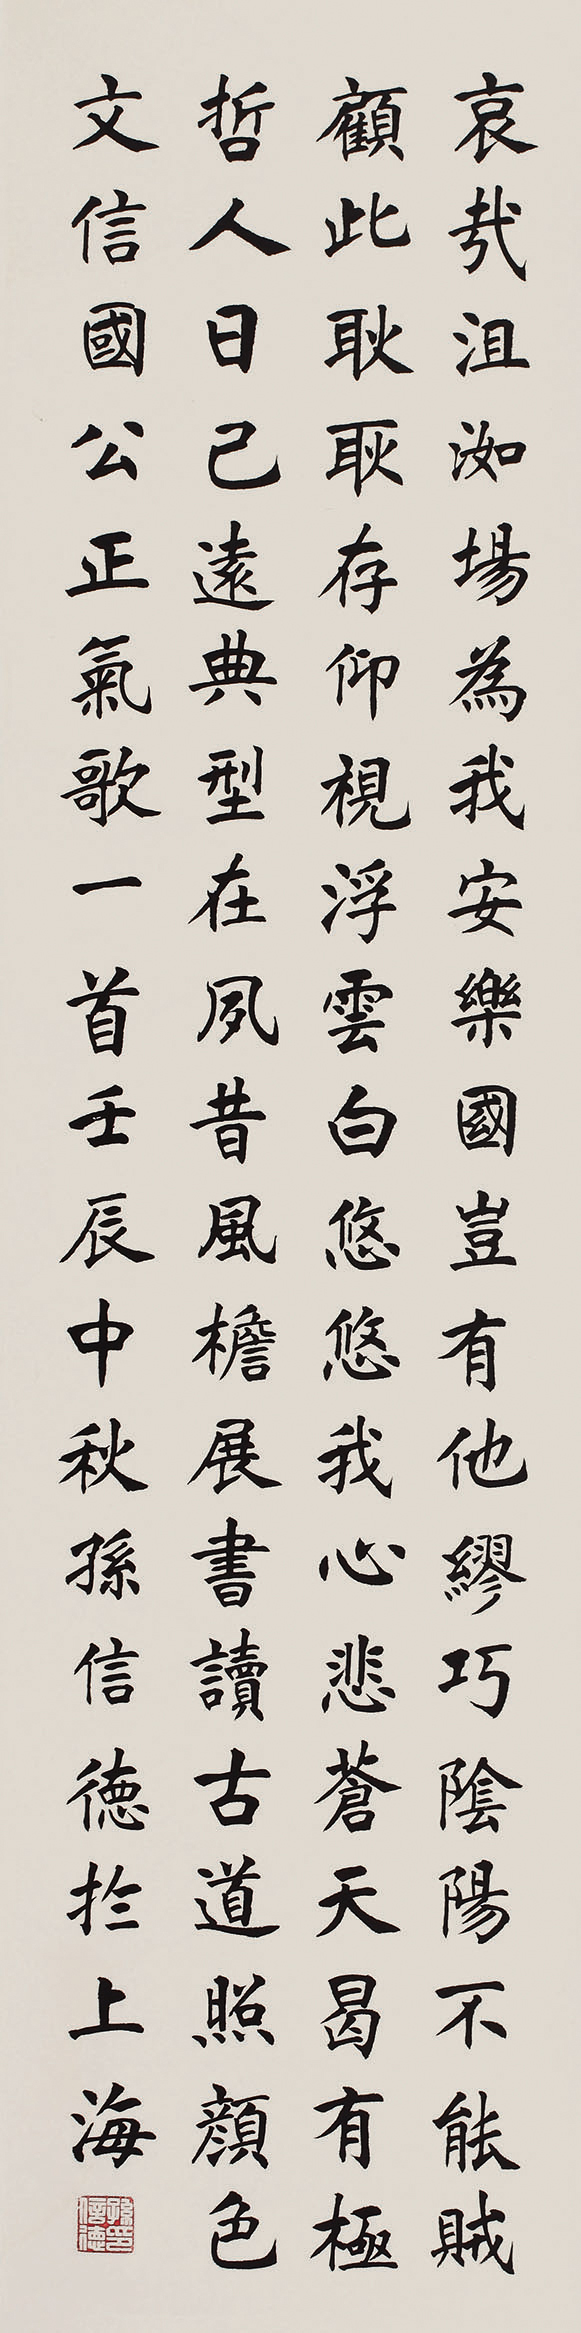 哀哉沮洳場為我安樂國豈有他繆巧陰陽不能賊
顧此耿耿存仰視浮雲白悠悠我心悲蒼天曷有極
哲人日已遠典型在夙昔風檐展書讀古道照顏色
文信國公正氣歌一首壬辰中秋孫信德於上海
孫信德印